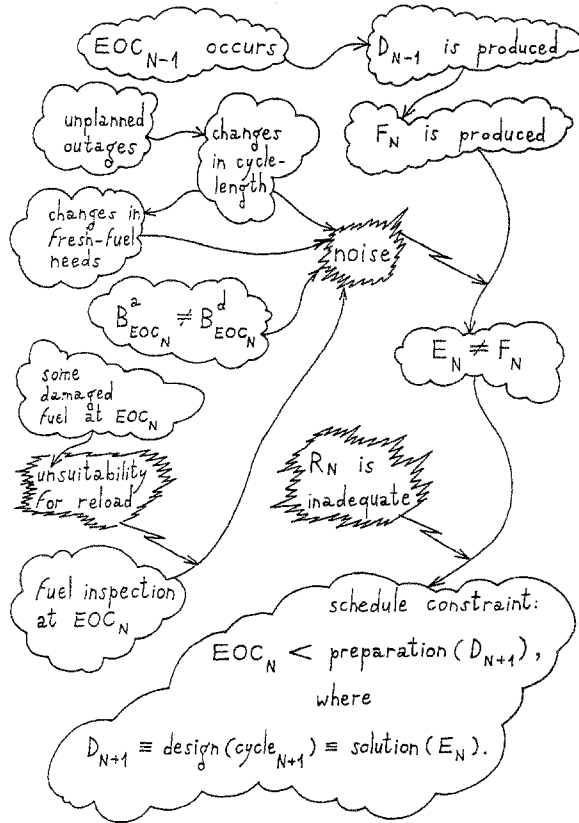 EOC_{N-1} occurs
D_{N-1} is produced
F_N is produced
unplanned
outages
changes
in cycle-
length
changes in
fresh-fuel
needs
noise
B^a_{EOC_N} ≠ B^d_{EOC_N}
E_N ≠ F_N
some
damaged
fuel at EOC_N
unsuitability
for reload
R_N is
inadequate
fuel inspection
at EOC_N
schedule constraint:
EOC_N < preparation(D_{N+1}),
where
D_{N+1} ≡ design(cycle_{N+1}) ≡ solution(E_N).